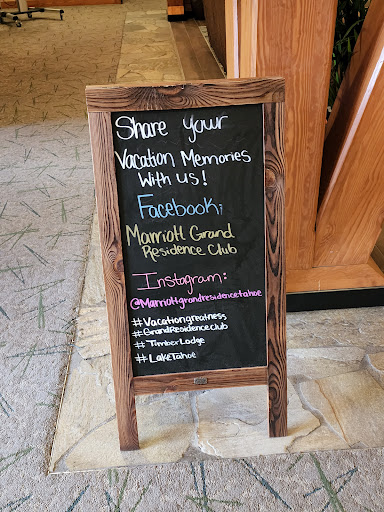 Share Your
Vacation Memories
With us!
Facebook;
Marriott Grand
Residence Club
Instagram:
@Marriottgrandresidencetahoe
#Vacationgreatness
#GrandResidenceClub
#TimberLodge
#LakeTahoe